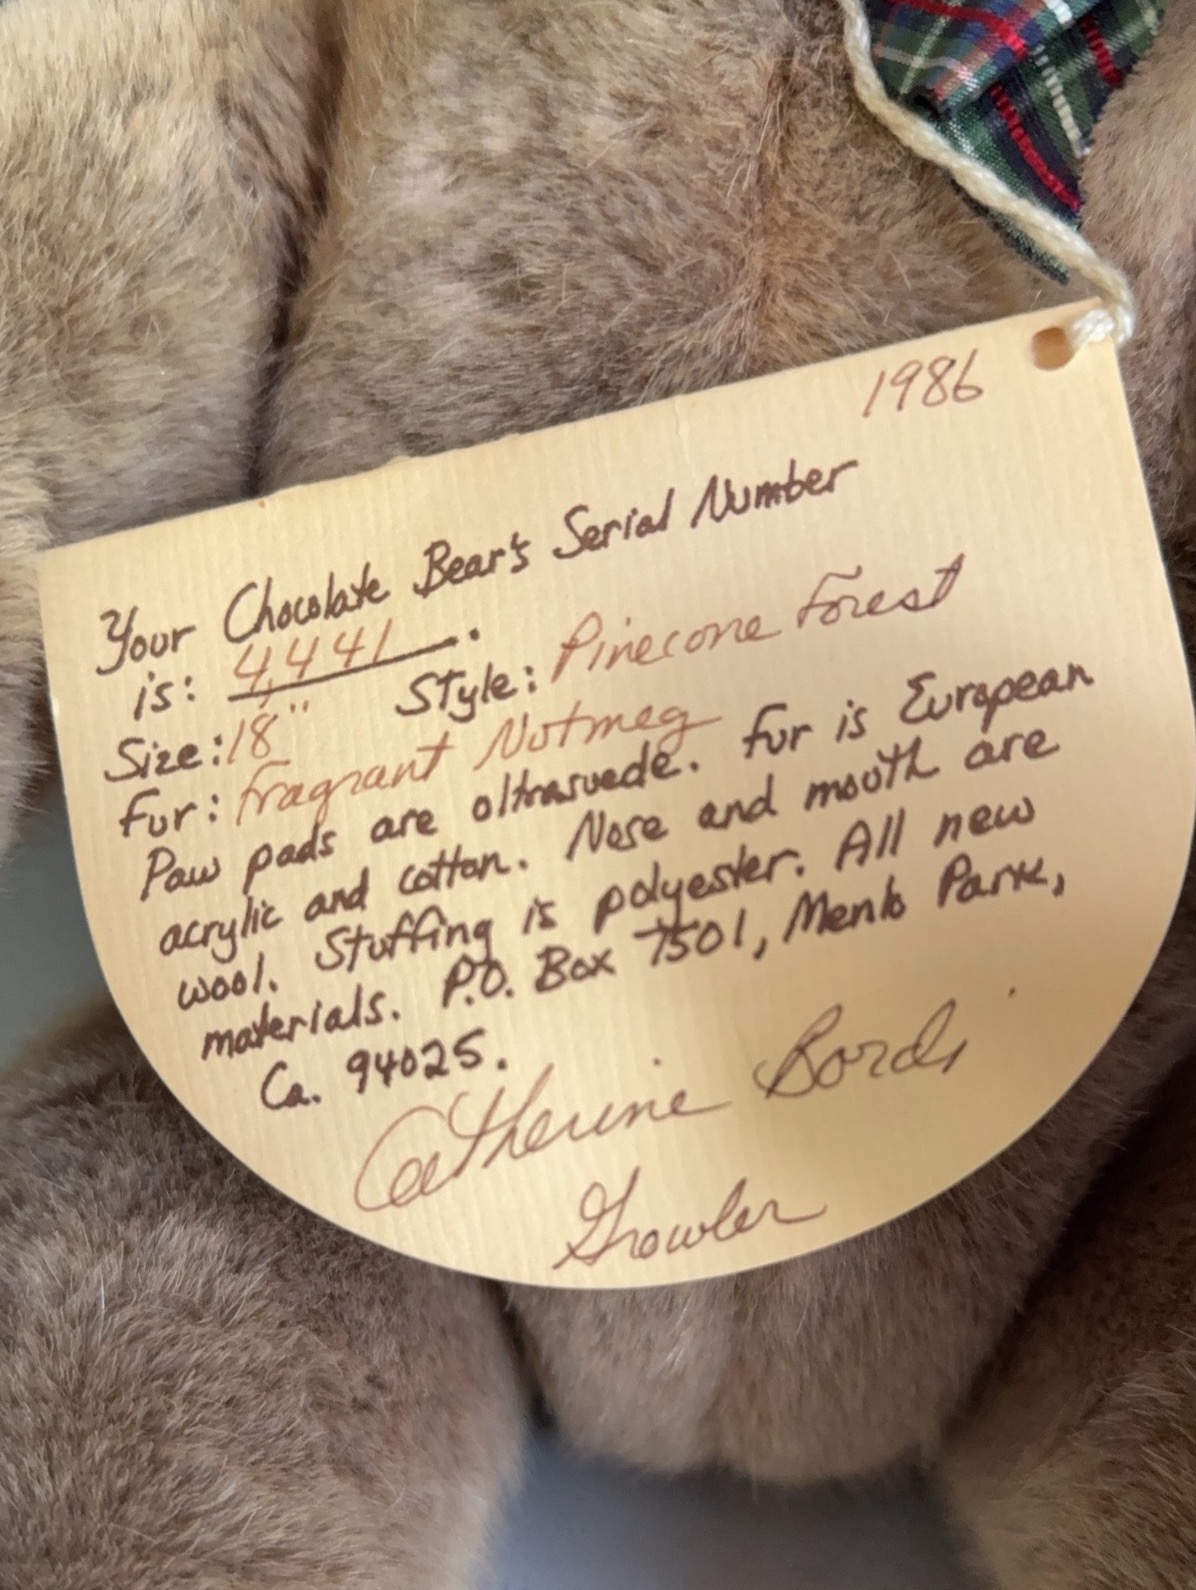 1986
Your Chocolate Bear's Serial Number
is: 4,441. Style: Pinecone Forest
Size: 18"
Fur: Fragrant Nutmeg
Paw pads are ultrasuede. Fur is European
acrylic and cotton. Nose and mouth are
wool. Stuffing is polyester. All new
materials. P.O. Box 7501, Menlo Park,
Ca. 94025.
Catherine Bordi
Growler